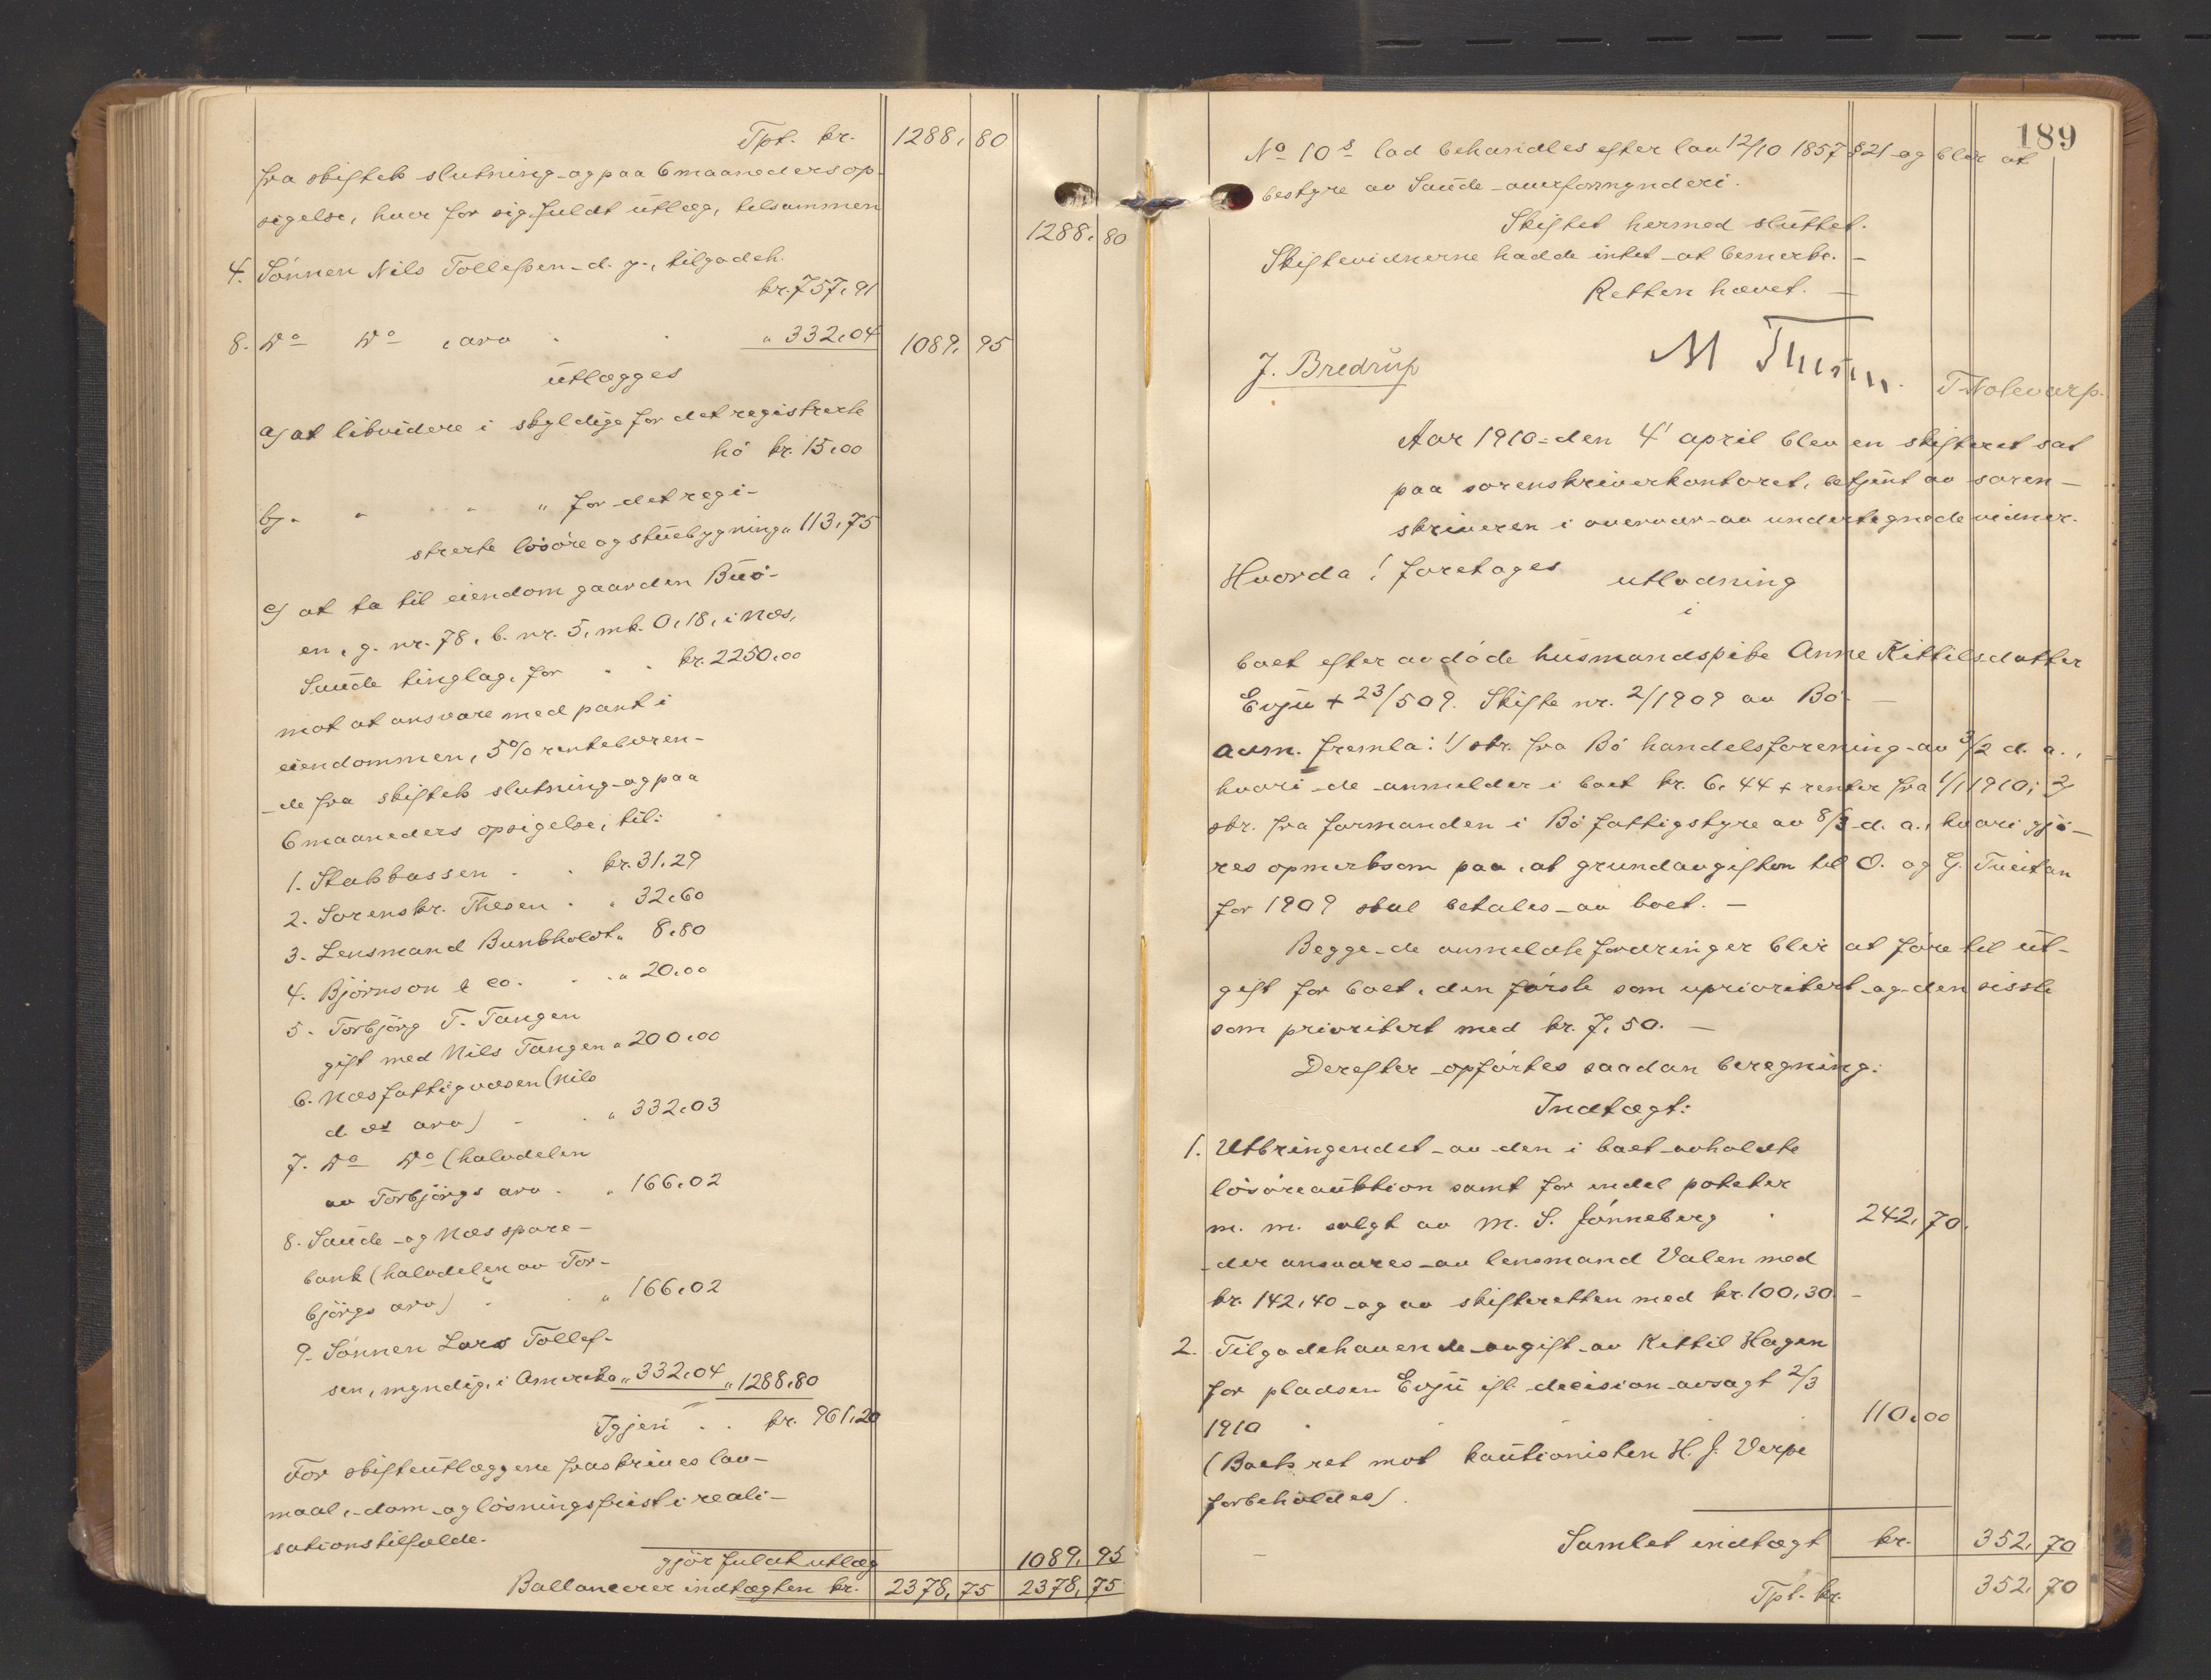 Tpt. kr. 1288,80
fra skiftets slutning og paa 6 maaneders op-
sigelse, hver for sig fuldt utlæg, tilsammen 1288,80
4. Sønnen Nils Tollefsen d. y., tilgodeh.
kr. 757,91
8. Do Do , arv " 332,04 1089,95
utlægges
a) at likvidere i skyldige for det registrerte
hø kr. 15,00
b) " " " " for det regi-
strerte løsøre og stuebygning " 113,75
c) at ta til eiendom gaarden Buø-
en, g. nr. 78, b. nr. 5, mk. 0,18, i Næs,
Saude tinglag, for . . kr. 2250,00
mot at ansvare med pant i
eiendommen, 5% rentebæren-
de fra skiftets slutning og paa
6 maaneders opsigelse, til:
1. Statskassen . . kr. 31,29
2. Sorenskr. Thesen . " 32,60
3. Lensmand Bunkholdt " 8,80
4. Bjørnson & co. . . " 20,00
5. Torbjørg T. Tangen
gift med Nils Tangen " 200,00
6. Næs fattigvæsen (Nils
d. æs arv) . . " 332,03
7. Do Do (halvdelen
av Torbjørgs arv . " 166,02
8. Saude og Næs spare-
bank (halvdelen av Tor-
bjørgs arv) . . " 166,02
9. Sønnen Lars Tollef-
sen, myndig, i Amerika " 332,04 " 1288,80
Igjen . . kr. 961,20
For skifteutlæggene fraskrives lov-
maal, dom og løsningsfrist i reali-
sationstilfælde.
gjør fuldt utlæg 1089,95
Ballancerer indtægten kr. 2378,75 2378,75
189
No 10s lod behandles efter lov 12/10 1857 § 21 og blir at
bestyre av Saude overformynderi.
Skiftet hermed sluttet.
Skiftevidnerne hadde intet at bemerke. –
Retten hævet. –
M Thesen.
J. Bredrup T. Holevarp.
Aar 1910 den 4' april blev en skifteret sat
paa sorenskriverkontoret, betjent av soren-
skriveren i overvær av undertegnede vidner.
Hvorda! foretages utlodning
i
boet efter avdøde husmandspike Anne Kittilsdatter
Evju + 23/5 09. Skifte nr. 2/1909 av Bø. –
adm. fremla: 1/ skr. fra Bø handelsforening av 3/2 d. a.,
hvori de anmelder i boet kr. 6,44 + renter fra 1/1 1910; 2)
skr. fra formanden i Bø fattigstyre av 8/3 d. a., hvori gjø-
res opmerksom paa, at grundavgiften til O. og G. Tveitan
for 1909 skal betales av boet. –
Begge de anmeldte fordringer blir at føre til ut-
gift for boet, den første som uprioritert og den sisste
som prioritert med kr. 7,50. –
Derefter opførtes saadan beregning:
Indtægt:
1. Utbringendet av den i boet avholdte
løsøreauktion samt for endel poteter
m. m. solgt av M. S. Jønneberg . 242,70.
der ansvares av lensmand Valen med
kr. 142,40 og av skifteretten med kr. 100,30 –
2. Tilgodehavende avgift av Kittil Hagen
for pladsen Evju ifl. decision avsagt 2/3
1910 . . . 110,00
(Boets ret mot kautionisten H. J. Verpe
forbeholdes).
Samlet indtægt kr. 352,70
Tpt. kr. 352,70